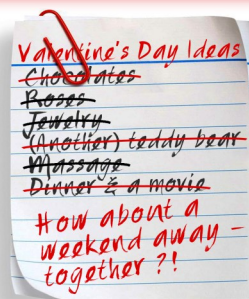 Valentine's Day Ideas
Chocolates
Roses
Jewelry
(Another) teddy bear
Massage
Dinner & a movie
How about a
weekend away -
together ?!